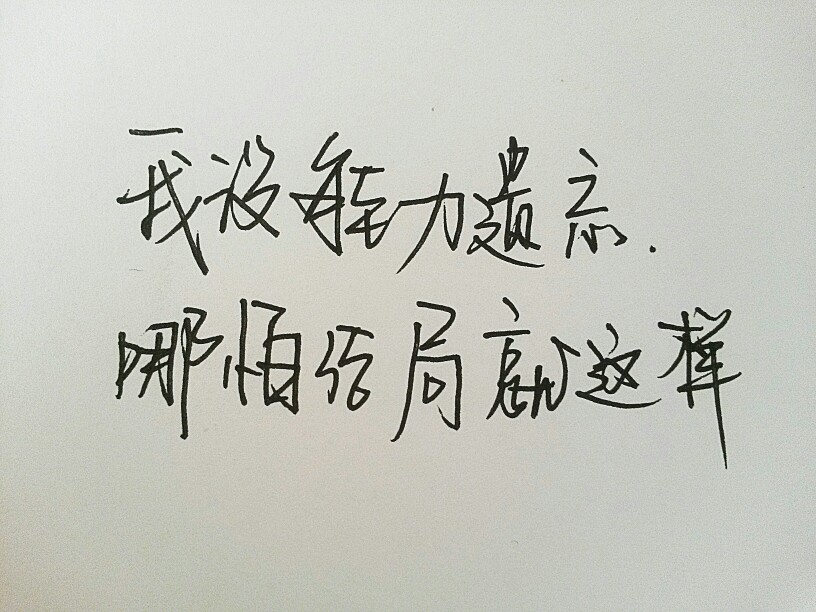 我没能力遗忘.
哪怕结局就这样